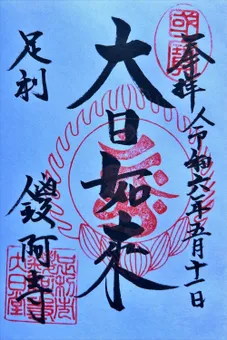 奉拝
令和六年五月十一日
大日如来
足利
鑁阿寺